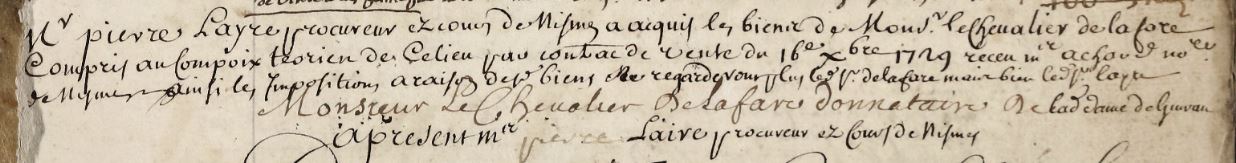 Mr pierre Layre procureur ez cours de Nismes a acquis les biens de Monsr. le Chevalier de la fare
Compris au Compoix terrien de Celieu par contrac de vente du 16e Xbre 1729 receu mr achard nore.
de Nismes ainsi les Impositions a raison desd. biens Ne regarderont plus led. sr. de lafare mais bien led. sr. layre
Monsieur Le Chevalier De Lafare donnataire De lad. dame de
apresent mr pierre Laire procureur ez Cours de Nismes